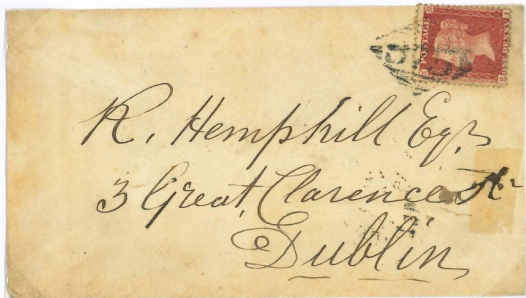 POSTAGE
R. Hemphill Esqr
3 Great Clarence St
Dublin